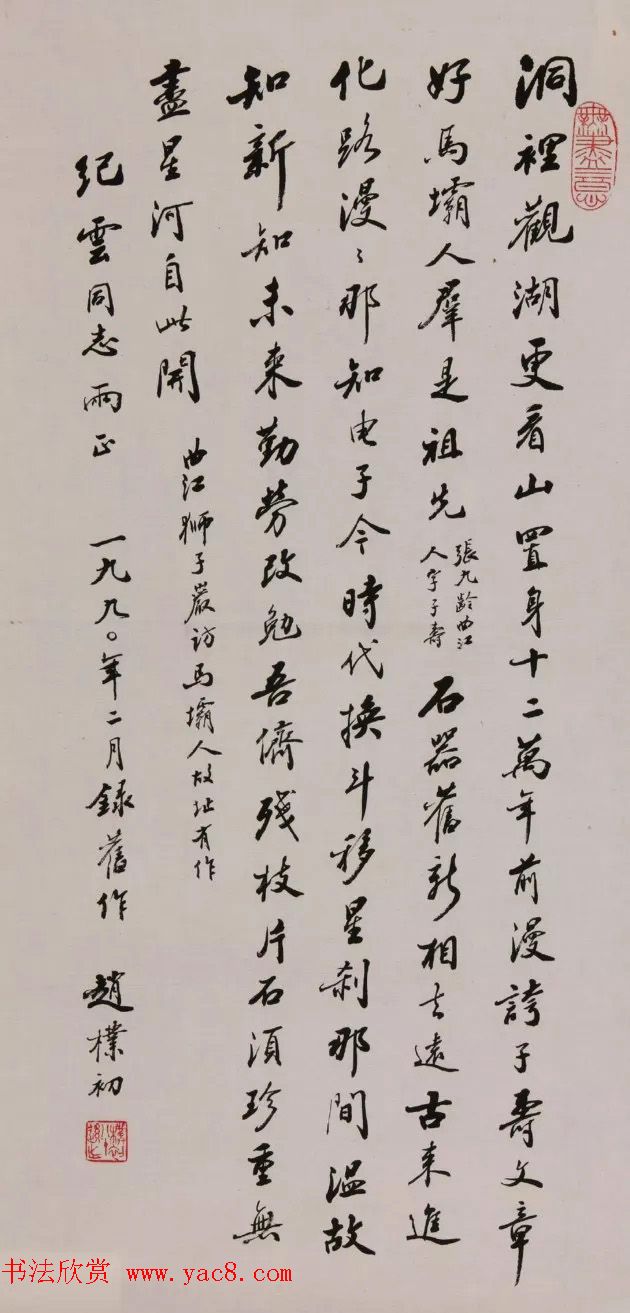 洞裡觀湖更看山置身十二萬年前漫誇子壽文章
好馬壩人羣是祖先
張九齡曲江
人字子壽
石器舊新相去遠古来進
化路漫〻那知电子今時代換斗移星刹那間温故
知新知未来勤勞改勉吾儕殘枝片石須珍重無
盡星河自此開
曲江狮子巖访馬壩人故址有作
紀雲同志兩正
一九九〇年二月録舊作
趙樸初
無盡意
书法欣赏 www.yac8.com